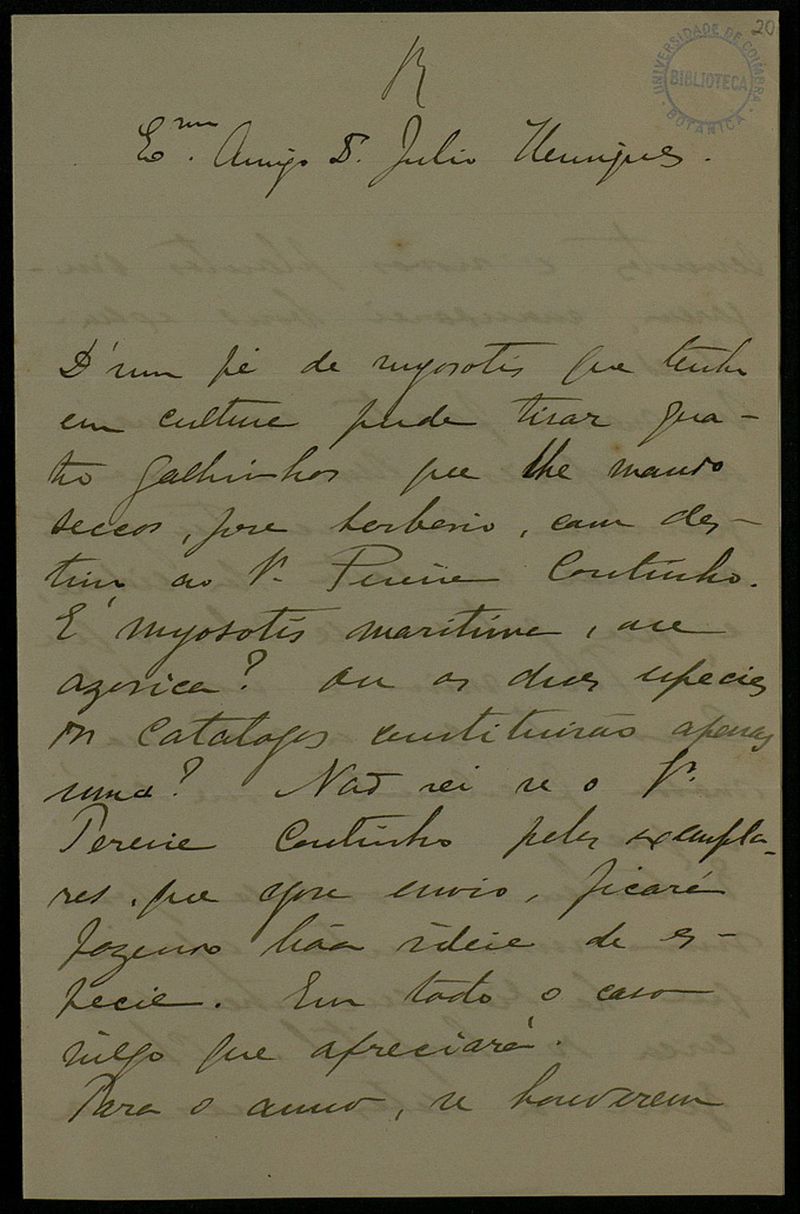 20
UNIVERSIDADE DE COIMBRA
BIBLIOTECA
BOTANICA
R
Exmo. Amigo Dr. Julio Henriques.
D'um pé de myosotis que tenho
em cultura pude tirar qua-
tro galhinhos que lhe mando
seccos, para herbario, com des-
tino ao Sr. Pereira Coutinho.
É myosotis maritima, ou
azorica? Ou as duas especies
os Catalogos constituirão apenas
uma? Não sei se o Sr.
Pereira Coutinho pelos exempla-
res, que agora envio, ficará
fazendo bôa ideia da es-
pecie. Em todo o caso
julgo que apreciará.
Para o anno, se houverem